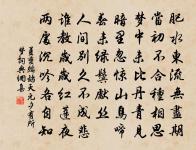 肥水東流無盡期
當初不合種相思
夢中未比丹青見
暗里忽驚山鳥啼
春未綠鬢先絲
人間別久不成悲
誰教歲歲紅蓮夜
兩處沉吟各自知
姜夔鷓鴣天元夕有所
夢詞典網集